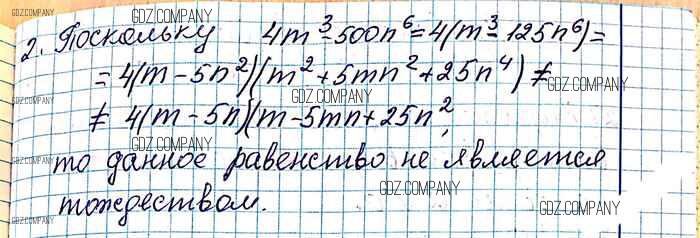 GDZ.COMPANY
GDZ.COMPANY GDZ.COMPANY
2. Поскольку 4m³-500n⁶=4(m³-125n⁶)=
GDZ.COMPANY
= 4(m-5n²)(m²+5mn²+25n⁴) ≠
GDZ.COMPANY GDZ.COMPANY
≠ 4(m-5n)(m-5mn+25n²,
GDZ.COMPANY
то данное равенство не является
GDZ.COMPANY GDZ.COMPANY
тождеством.
GDZ.COMPANY GDZ.COMPANY